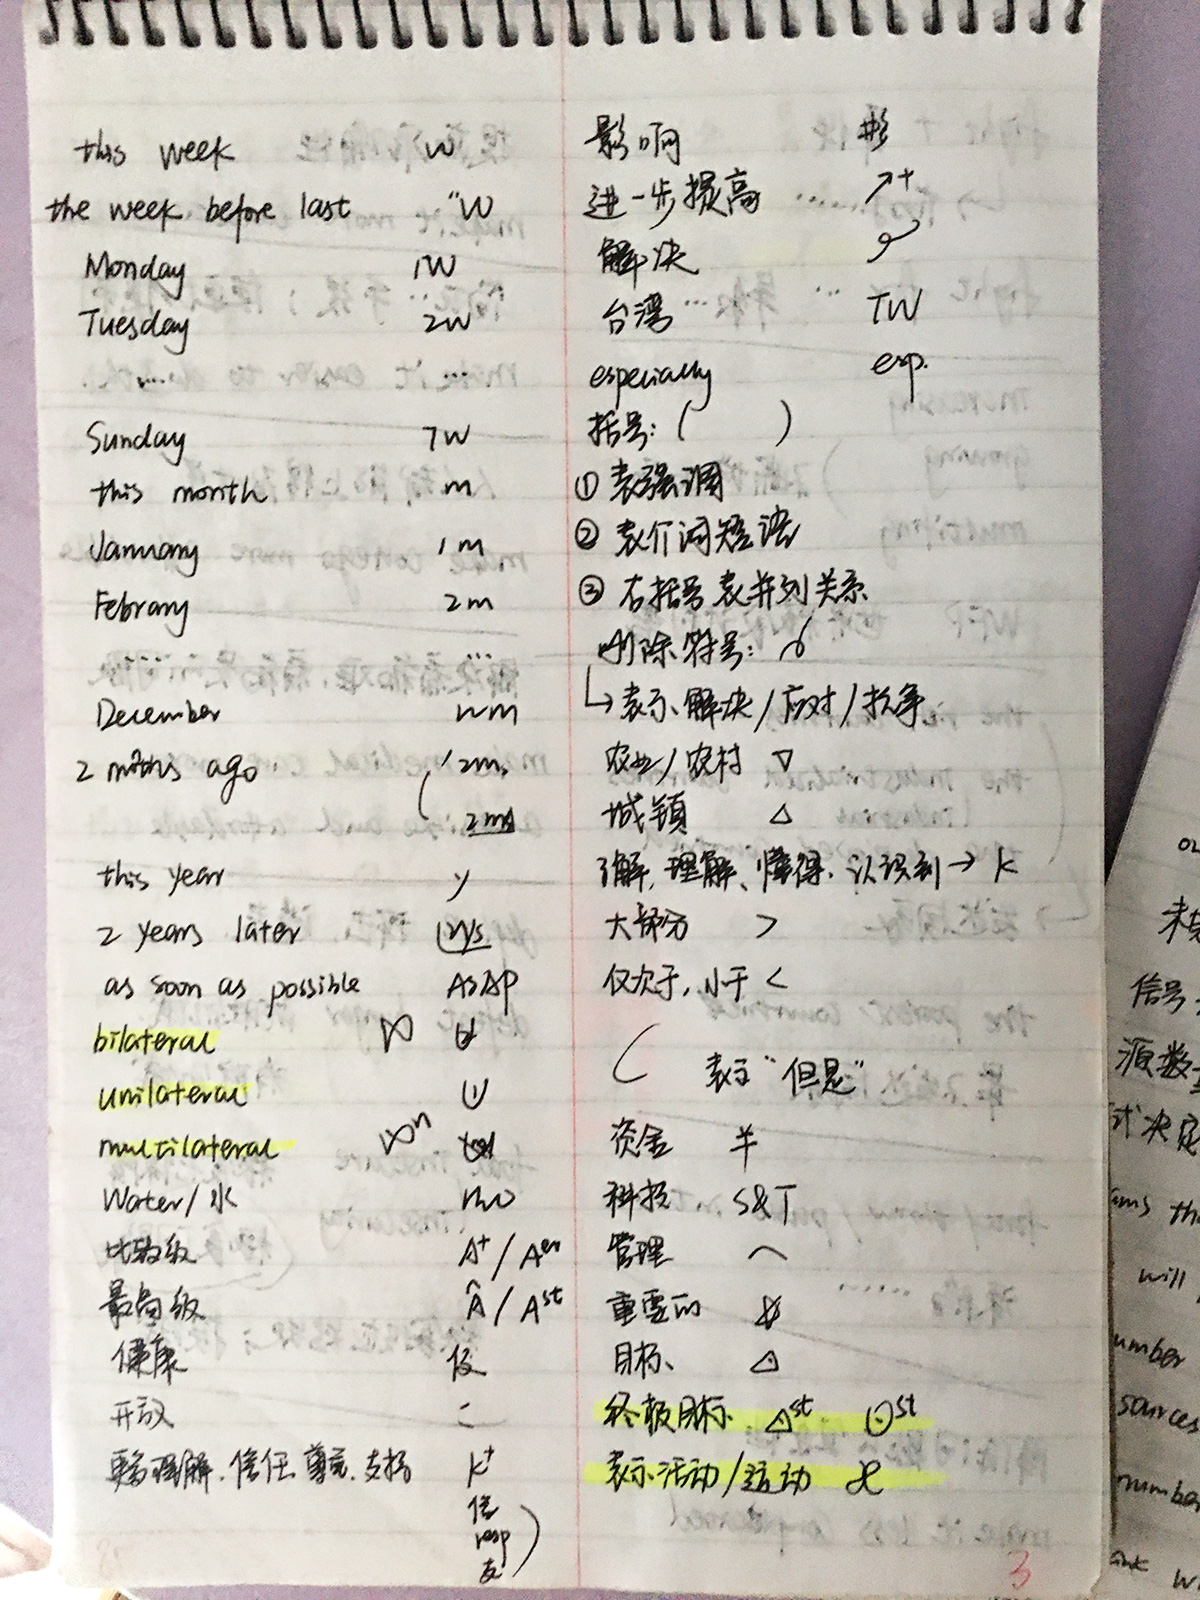 this week W
the week before last "W
Monday 1W
Tuesday 2W
...... ...
Sunday 7W
this month m
January 1m
Febrary 2m
...... ...
December
2 mths ago 2m,
2m
this year y
2 years later 2ys
as soon as possible ASAP
bilateral
unilateral
multilateral
Water/水
比较级 A⁺/Aer
最高级 Â/Ast
健康
开放
理解、信任、尊重、支持 K⁺
信
resp
支
影响
进一步提高 ↗+
解决
台湾 TW
especially esp.
括号：( )
① 表强调
② 表介词短语
③ 右括号表并列关系
删除符号：
↳表示、解决/应对/抗争
农业/农村 ▽
城镇 △
了解、理解、懂得、认识到→K
大部分 >
仅次于，小于 <
( 表示“但是”
资金
科技 S&T
管理
重要的
目标、
终极目标、 st ⊙st
表示活动/运动
3
未
信号
源数
式决定
ams th
will
umber
sources
number
ink wi